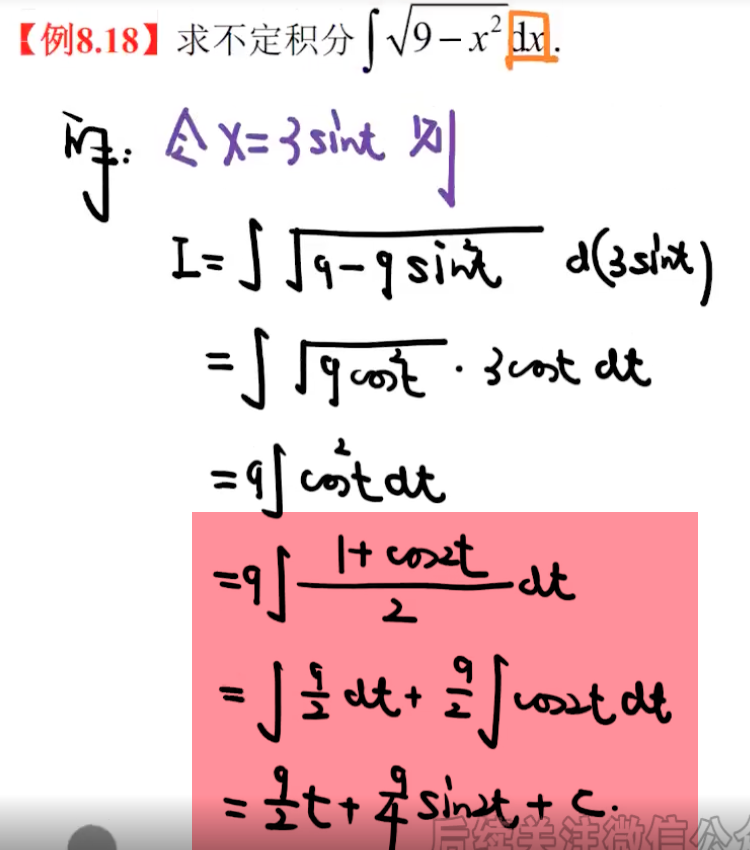 【例8.18】求不定积分∫√(9−x²)dx.
解: 令 x=3sint 则
I=∫√(9−9sin²t) d(3sint)
=∫√(9cos²t)·3cost dt
=9∫cos²t dt
=9∫(1+cos2t)/2 dt
=∫9/2 dt+9/2∫cos2t dt
=9/2 t+9/4 sin2t+C.
后续关注微信公众